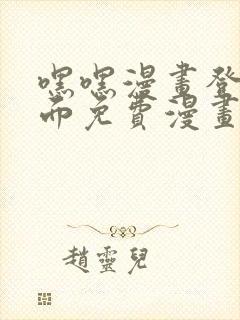 嘿嘿漫畫登
而免費漫畫
趙靈兒